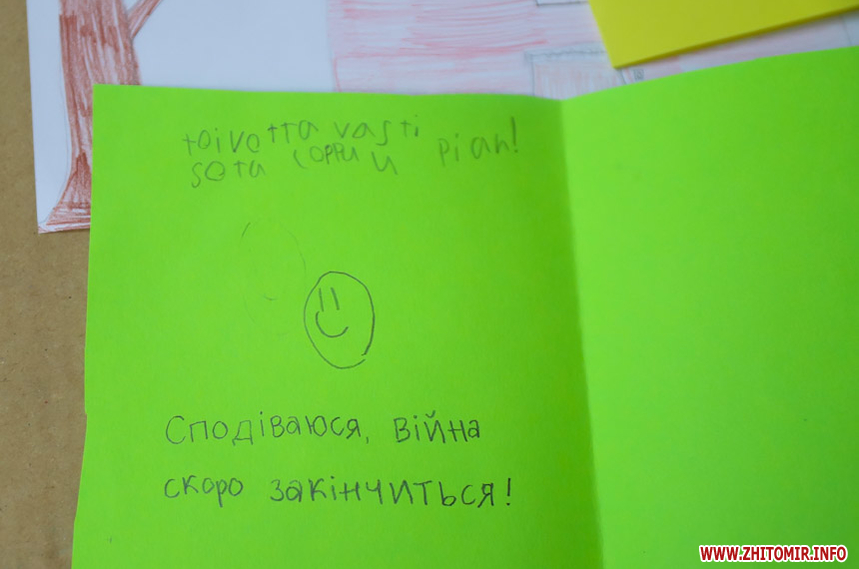 toivotta vasti
sota loppuu pian!
Сподіваюся, війна
скоро закінчиться!
WWW.ZHITOMIR.INFO